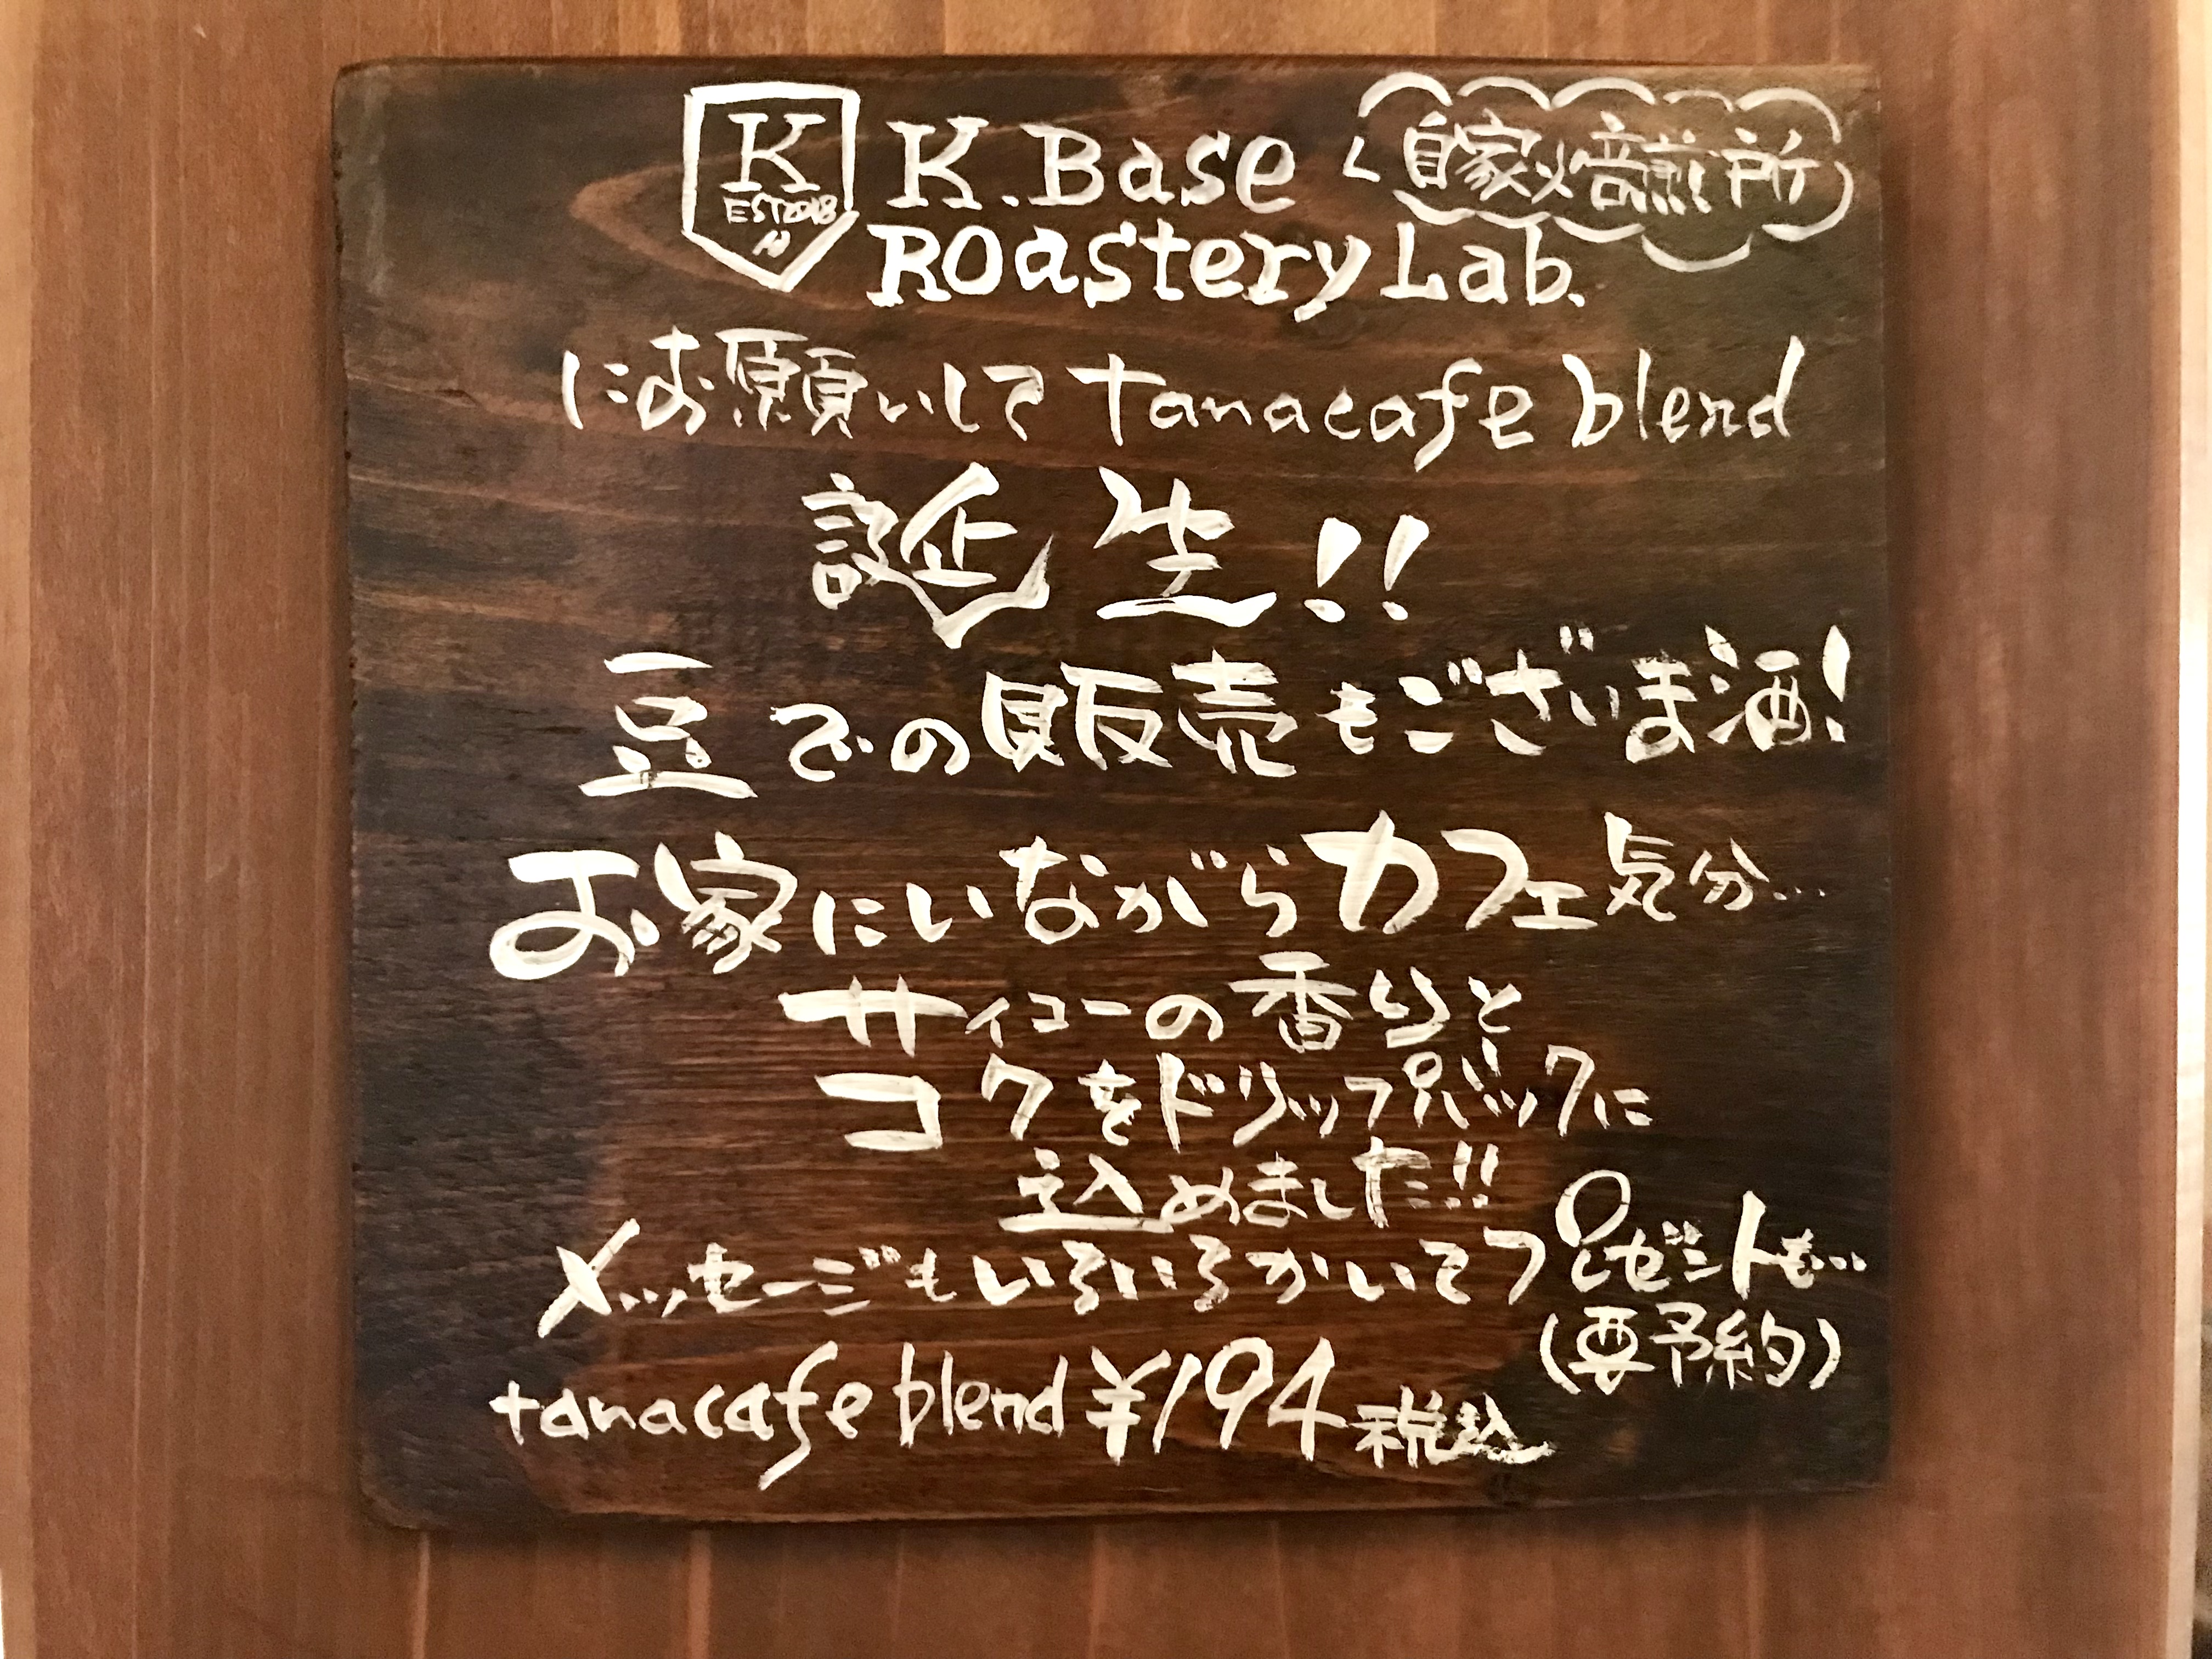 K
EST2018
K.Base
自家焙煎所
Roastery Lab.
にお願いして tanacafe blend
誕生!!
豆での販売もございま酒!
お家にいながらカフェ気分...
サイコーの香りと
コクをドリップバックに
込めました!!
メッセージもいろいろかいてプレゼントも...
(要予約)
tanacafe blend ¥194 税込